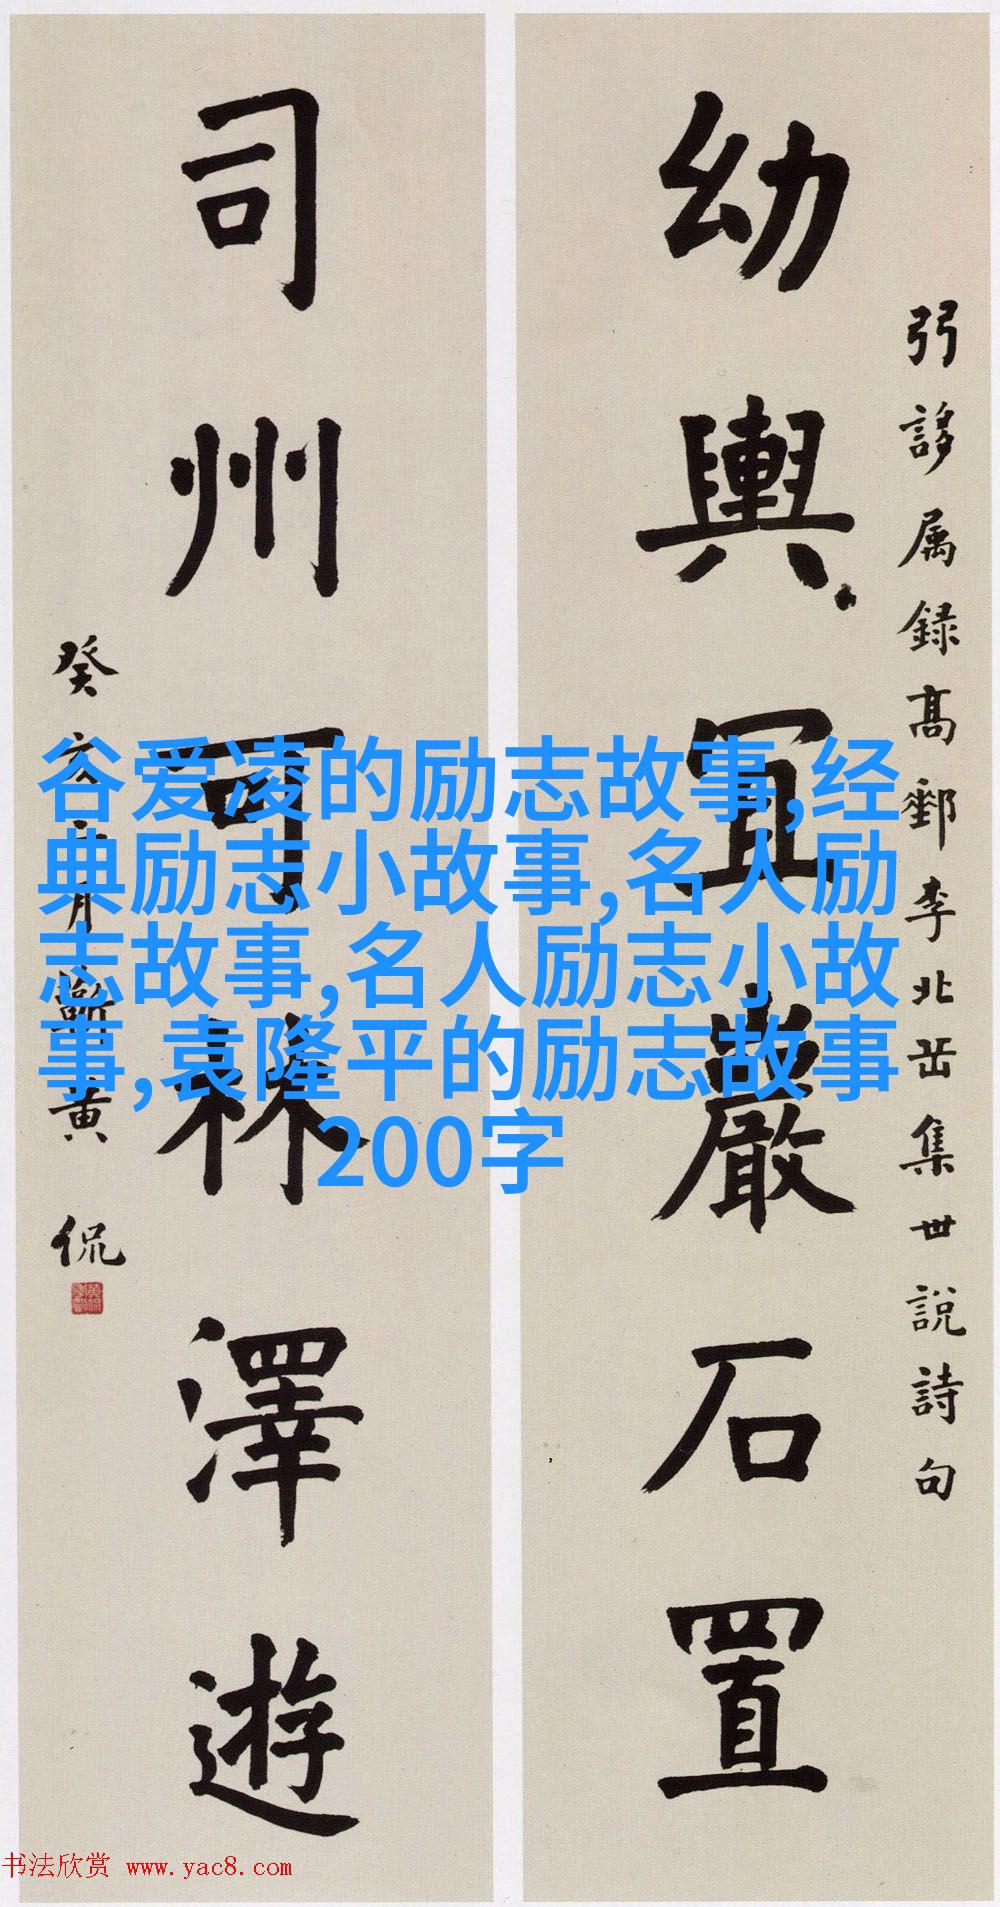 弜誃属録髙郵李北岳集世說詩句
幼輿冝巖石置
司州可林澤遊
癸亥月蘄黄侃
谷爱凌的励志故事,经
典励志小故事,名人励
志故事,名人励志小故
事,袁隆平的励志故事
200字
书法欣赏 www.yac8.com